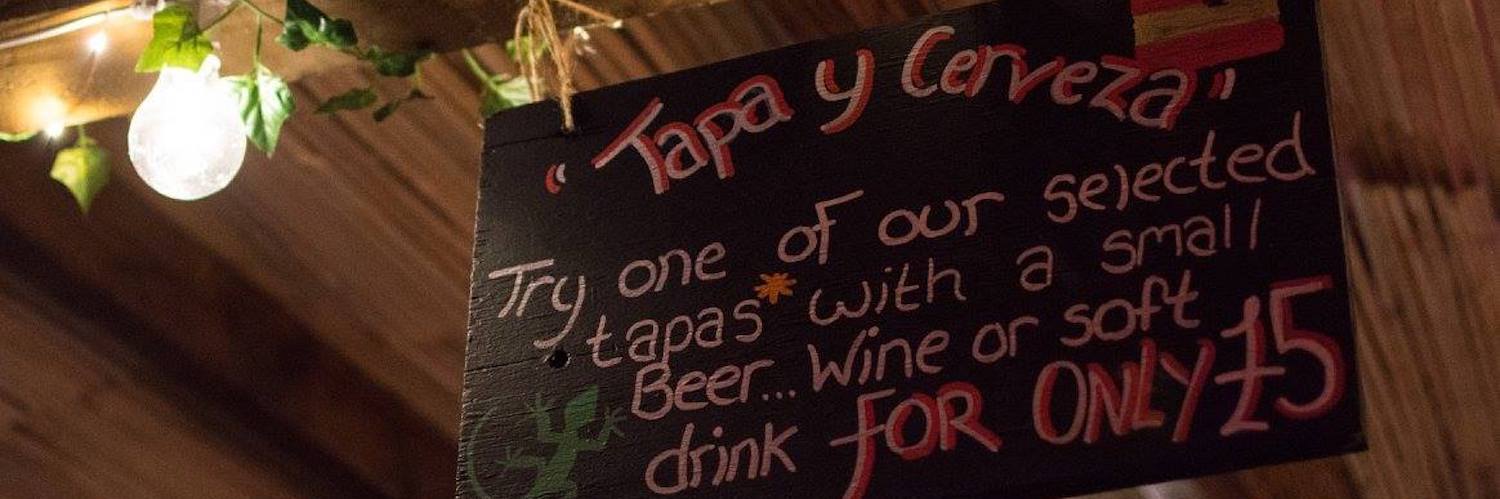 "Tapa y Cerveza"
Try one of our selected
tapas* with a small
Beer... Wine or soft
drink FOR ONLY £5